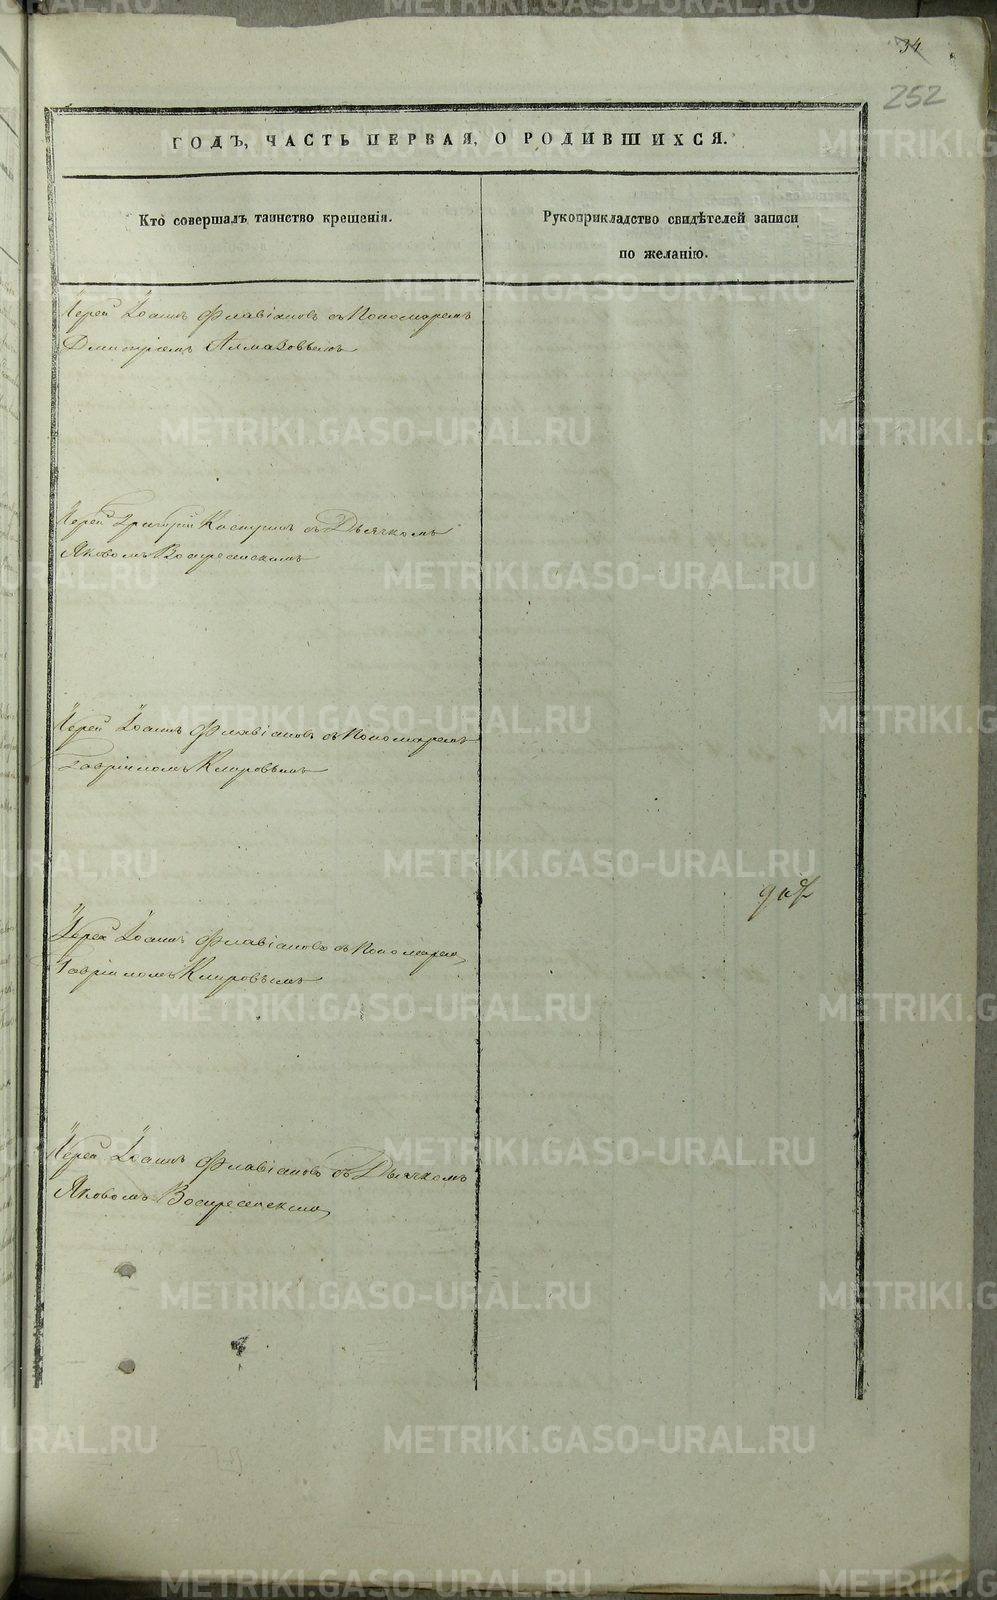 34
252
ГОДЪ, ЧАСТЬ ПЕРВАЯ, О РОДИВШИХСЯ.
Кто совершалъ таинство крещенія.
Рукоприкладство свидѣтелей записи
по желанію.
Іерей Іоаннъ Флавіановъ съ Пономаремъ
Дмитріемъ Алмазовымъ
Іерей Григорій съ Дьячкомъ
Яковомъ Воскресенскимъ
Іерей Іоаннъ Флавіановъ съ Пономаремъ
Гавріиломъ Клировымъ
Іерей Іоаннъ Флавіановъ съ Пономаремъ
Гавріиломъ Клировымъ
Іерей Іоаннъ Флавіановъ съ Дьячкомъ
Яковомъ Воскресенскимъ
METRIKI.GASO-URAL.RU